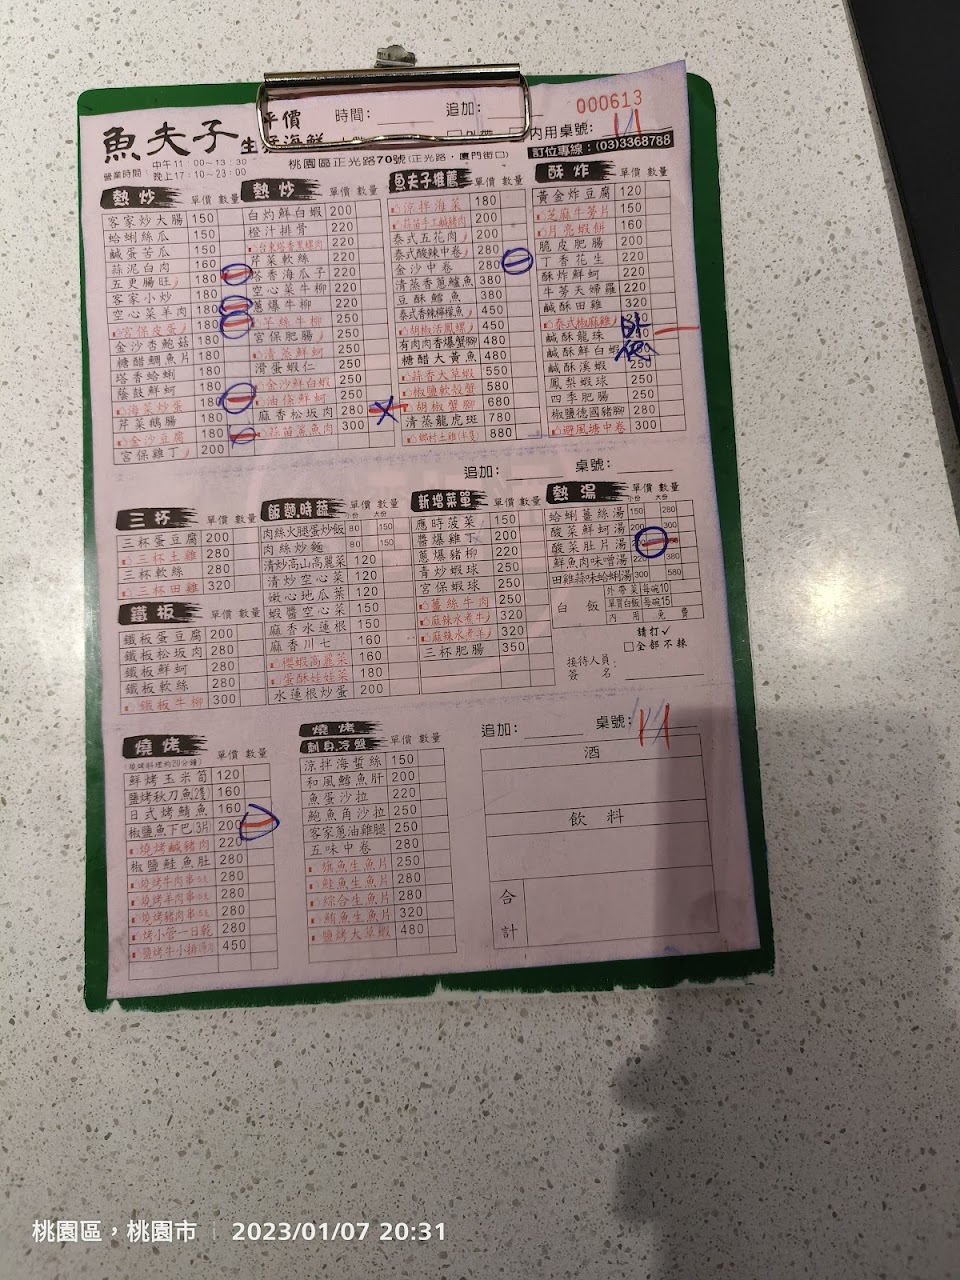 000613
平價
時間:
追加:
魚夫子
生猛海鮮
外帶
內用桌號: 11
營業時間
中午11:00~13:30
晚上17:10~23:00
桃園區正光路70號(正光路,廈門街口)
訂位專線:(03)3368788
熱炒 單價 數量
客家炒大腸 150
蛤蜊絲瓜 150
鹹蛋苦瓜 150
蒜泥白肉 160
五更腸旺 180
客家小炒 180
空心菜羊肉 180
宮保皮蛋 180
金沙杏鮑菇 180
糖醋鯛魚片 180
塔香蛤蜊 180
蔭鼓鮮蚵 180
海菜炒蛋 180
芹菜鵝腸 180
金沙豆腐 180
宮保雞丁 200
熱炒 單價 數量
白灼鮮白蝦 200
橙汁排骨 220
台東塔香黑螺肉 220
芹菜軟絲 220
塔香海瓜子 220
空心菜牛柳 220
蔥爆牛柳 220
芋絲牛柳 250
宮保肥腸 250
清蒸鮮蚵 250
滑蛋蝦仁 250
金沙鮮白蝦 250
油條鮮蚵 250
麻香松坂肉 280
蒜苗鯊魚肉 300
魚夫子推薦 單價 數量
涼拌海菜 180
蒜苗手工鹹豬肉 200
泰式五花肉 200
泰式酸辣中卷 280
金沙中卷 280
清蒸香蔥鱸魚 380
豆酥鱈魚 380
泰式香辣檸檬魚 450
胡椒活鳳螺 450
有肉肉香爆蟹腳 480
糖醋大黃魚 480
蒜香大草蝦 550
椒鹽軟殼蟹 580
胡椒蟹腳 680
清蒸龍虎斑 780
鄉村土雞(半隻) 880
酥炸 單價 數量
黃金炸豆腐 120
芝麻牛蒡片 150
月亮蝦餅 160
脆皮肥腸 200
丁香花生 220
酥炸鮮蚵 220
牛蒡天婦羅 220
鹹酥田雞 320
泰式椒麻雞
鹹酥龍珠
鹹酥鮮白蝦
鹹酥溪蝦 250
鳳梨蝦球 250
四季肥腸 250
椒鹽德國豬腳 280
避風塘中卷 300
追加:
桌號:
三杯 單價 數量
三杯蛋豆腐 200
三杯土雞 280
三杯軟絲 280
三杯田雞 320
鐵板 單價 數量
鐵板蛋豆腐 200
鐵板松坂肉 280
鐵板鮮蚵 280
鐵板軟絲 280
鐵板牛柳 300
飯麵時蔬 單價 數量
小份 大份
肉絲火腿蛋炒飯 80 150
肉絲炒麵 80 150
清炒高山高麗菜 120
清炒空心菜 120
嫩心地瓜葉 120
蝦醬空心菜 150
麻香水蓮根 150
麻香川七 160
櫻蝦高麗菜 160
蛋酥娃娃菜 180
水蓮根炒蛋 200
新增菜單 單價 數量
應時菠菜 150
醬爆雞丁 200
蔥爆豬柳 220
青炒蝦球 250
宮保蝦球 250
薑絲牛肉 250
麻辣水煮牛 320
麻辣水煮羊 320
三杯肥腸 350
熱湯 單價 數量
小份 大份
蛤蜊薑絲湯 150 280
酸菜鮮蚵湯 200 300
酸菜肚片湯
鮮魚肉味噌湯 220 380
田雞蒜味蛤蜊湯 300 580
白飯
外帶菜 每碗10
單買白飯 每碗15
內用免費
請打✓
全部不辣
接待人員:
簽名
追加:
桌號: 11
燒烤 單價 數量
(燒烤料理約20分鐘)
鮮烤玉米筍 120
鹽烤秋刀魚2隻 160
日式烤鯖魚 160
椒鹽魚下巴(3片) 200
燒烤鹹豬肉 220
椒鹽鮭魚肚 280
燒烤牛肉串 280
燒烤羊肉串 280
燒烤豬肉串 280
烤小管一日乾 280
鹽烤牛小排 450
燒烤
刺身冷盤 單價 數量
涼拌海蜇絲 150
和風鱈魚肝 200
魚蛋沙拉 220
鮑魚角沙拉 250
客家蔥油雞腿 250
五味中卷 280
旗魚生魚片 250
鮭魚生魚片 280
綜合生魚片 280
鮪魚生魚片 320
鹽烤大草蝦 480
酒
飲料
合計
桃園區,桃園市 | 2023/01/07 20:31